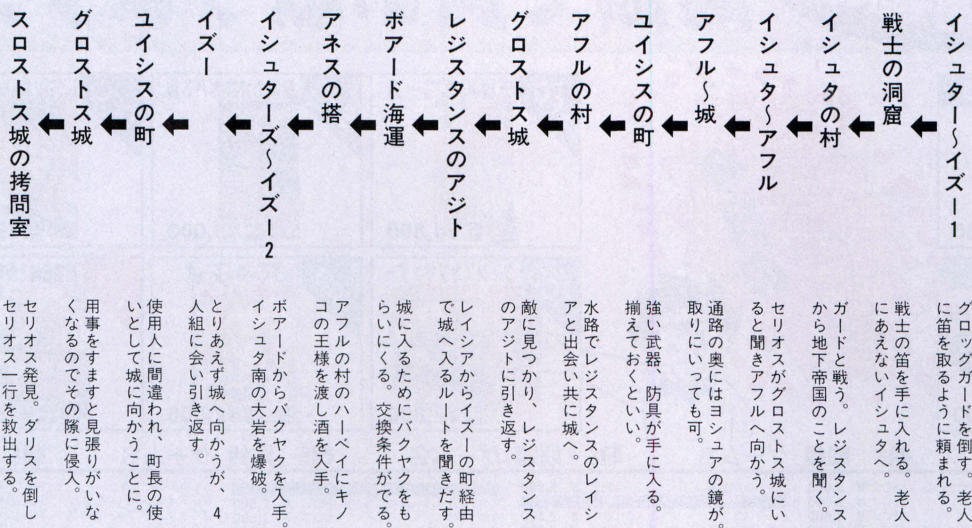 イシュター〜イズー1
グロッグガードを倒す。老人
に笛を取るように頼まれる。
戦士の洞窟
戦士の笛を手に入れる。老人
にあえないイシュタへ。
イシュタの村
ガードと戦う。レジスタンス
から地下帝国のことを聞く。
イシュタ〜アフル
セリオスがグロストス城にい
ると聞きアフルへ向かう。
アフル〜城
通路の奥にはヨシュアの鏡が。
取りにいっても可。
ユイシスの町
強い武器、防具が手に入る。
揃えておくとい。
アフルの村
水路でレジスタンスのレイシ
アと出会い共に城へ。
グロストス城
敵に見つかり、レジスタンス
のアジトに引き返す。
レジスタンスのアジト
レイシアからイズーの町経由
で城へ入るルートを聞きだす。
ボアード海運
城に入るためにバクヤクをも
らいにくる。交換条件がでる。
アネスの搭
アフルの村のハーベイにキノ
コの王様を渡し酒を入手。
イシュターズ〜イズー2
ボアードからバクヤクを入手。
イシュタ南の大岩を爆破。
イズー
とりあえず城へ向かうが、4
人組に会い引き返す。
ユイシスの町
使用人に間違われ、町長の使
いとして城に向かうことに。
グロストス城
用事をすますと見張りがいな
くなるのでその隙に侵入。
スロストス城の拷問室
セリオス発見。ダリスを倒し
セリオス一行を救出する。